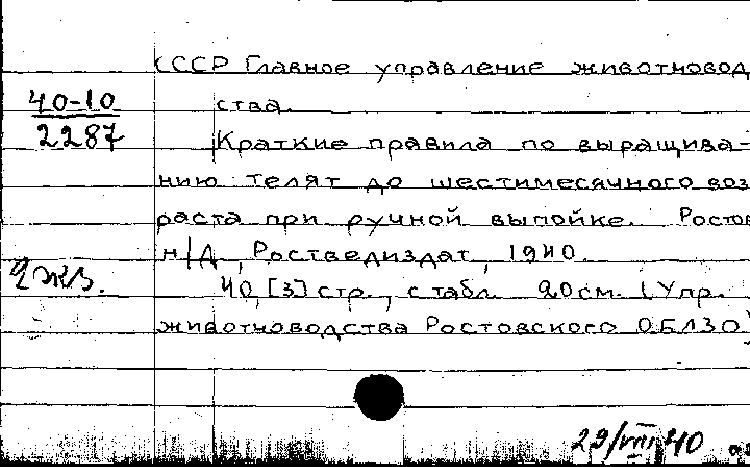 СССР Главное управление животновод
40-10
ства.
2287
Краткие правила по выращива-
нию телят до шестимесячного воз
раста при ручной выпойке. Ростов
н/Д, Роствединздат, 1940.
2 экз.
40, [3] стр., с табл. 20 см. (Упр.
животноводства Ростовского ОБЛЗО)
29/VIII 40